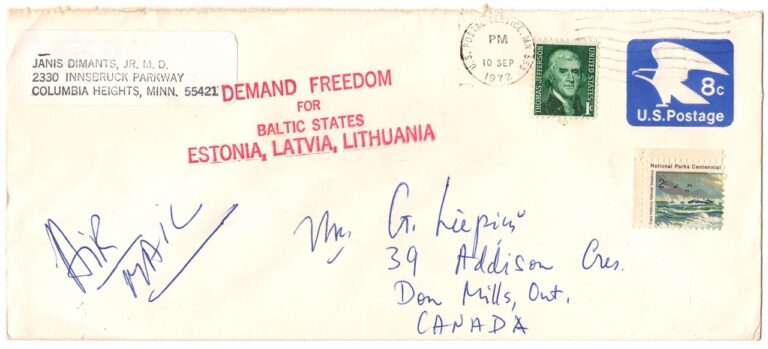 JANIS DIMANTS, JR. M. D.
2330 INNSBRUCK PARKWAY
COLUMBIA HEIGHTS, MINN. 55421
DEMAND FREEDOM
FOR
BALTIC STATES
ESTONIA, LATVIA, LITHUANIA
U.S. POSTAL SERVICE, MN 553
PM
10 SEP
1972
THOMAS JEFFERSON
UNITED STATES
1c
8c
U.S. Postage
National Parks Centennial
2
AIR
MAIL
G. Liepiņš
39 Addison Cres.
Don Mills, Ont.
CANADA